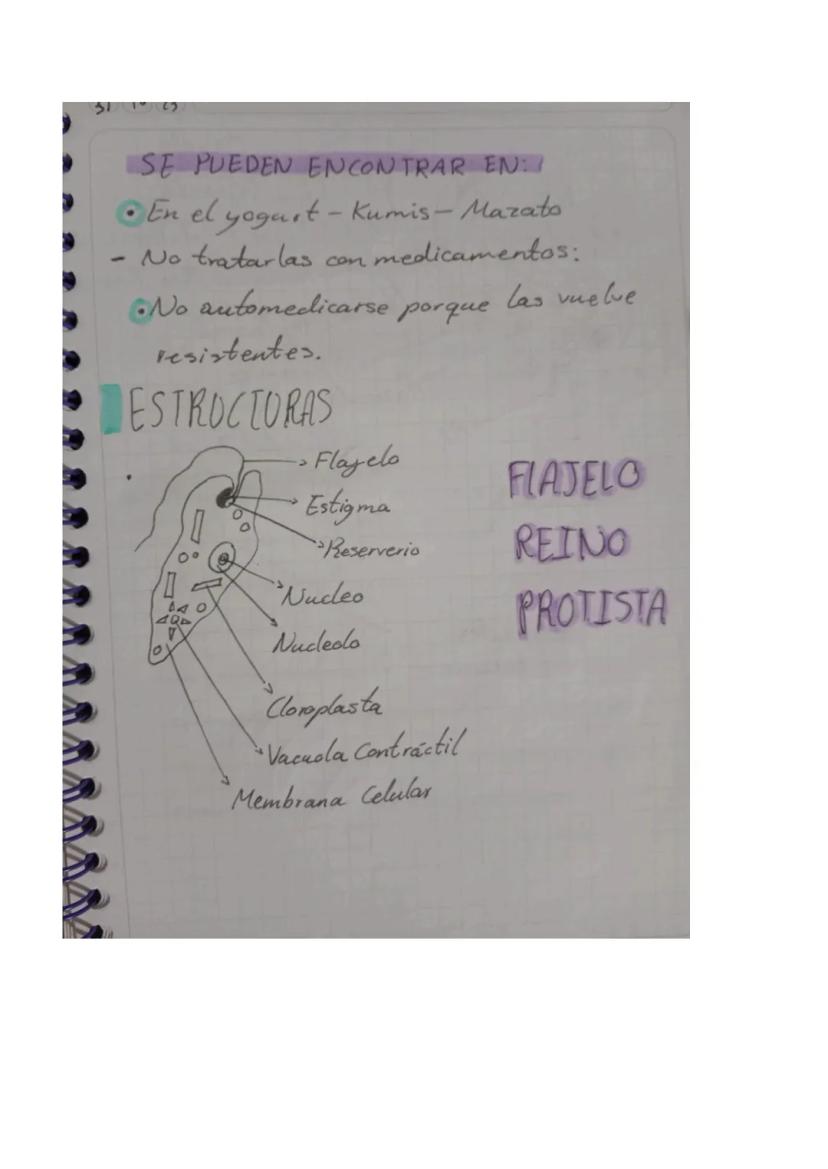 SE PUEDEN ENCONTRAR EN:
• En el yogurt - Kumis - Mazato
- No tratarlas con medicamentos:
• No automedicarse porque las vuelve
resistentes.
ESTRUCTURAS
Flajelo
Estigma
Reserverio
Nucleo
Nucleolo
Cloroplasta
Vacuola Contráctil
Membrana Celular
FLAJELO
REINO
PROTISTA